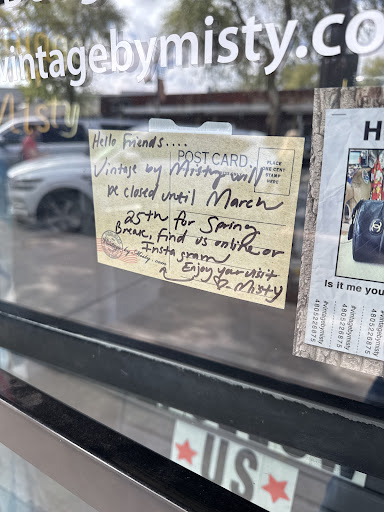 vintagebymisty.co
Misty
Hello Friends....
POST CARD.
PLACE
ONE CENT
STAMP
HERE
Vintage by Misty will
be closed until March
25th for Spring
Break, find us online or
Instagram
Enjoy your visit
Misty
H
Is it me you
#vintagebymisty
4805228875
#vintagebymisty
4805228875
#vintagebymisty
4805228875
#vintagebymisty
4805228875
US